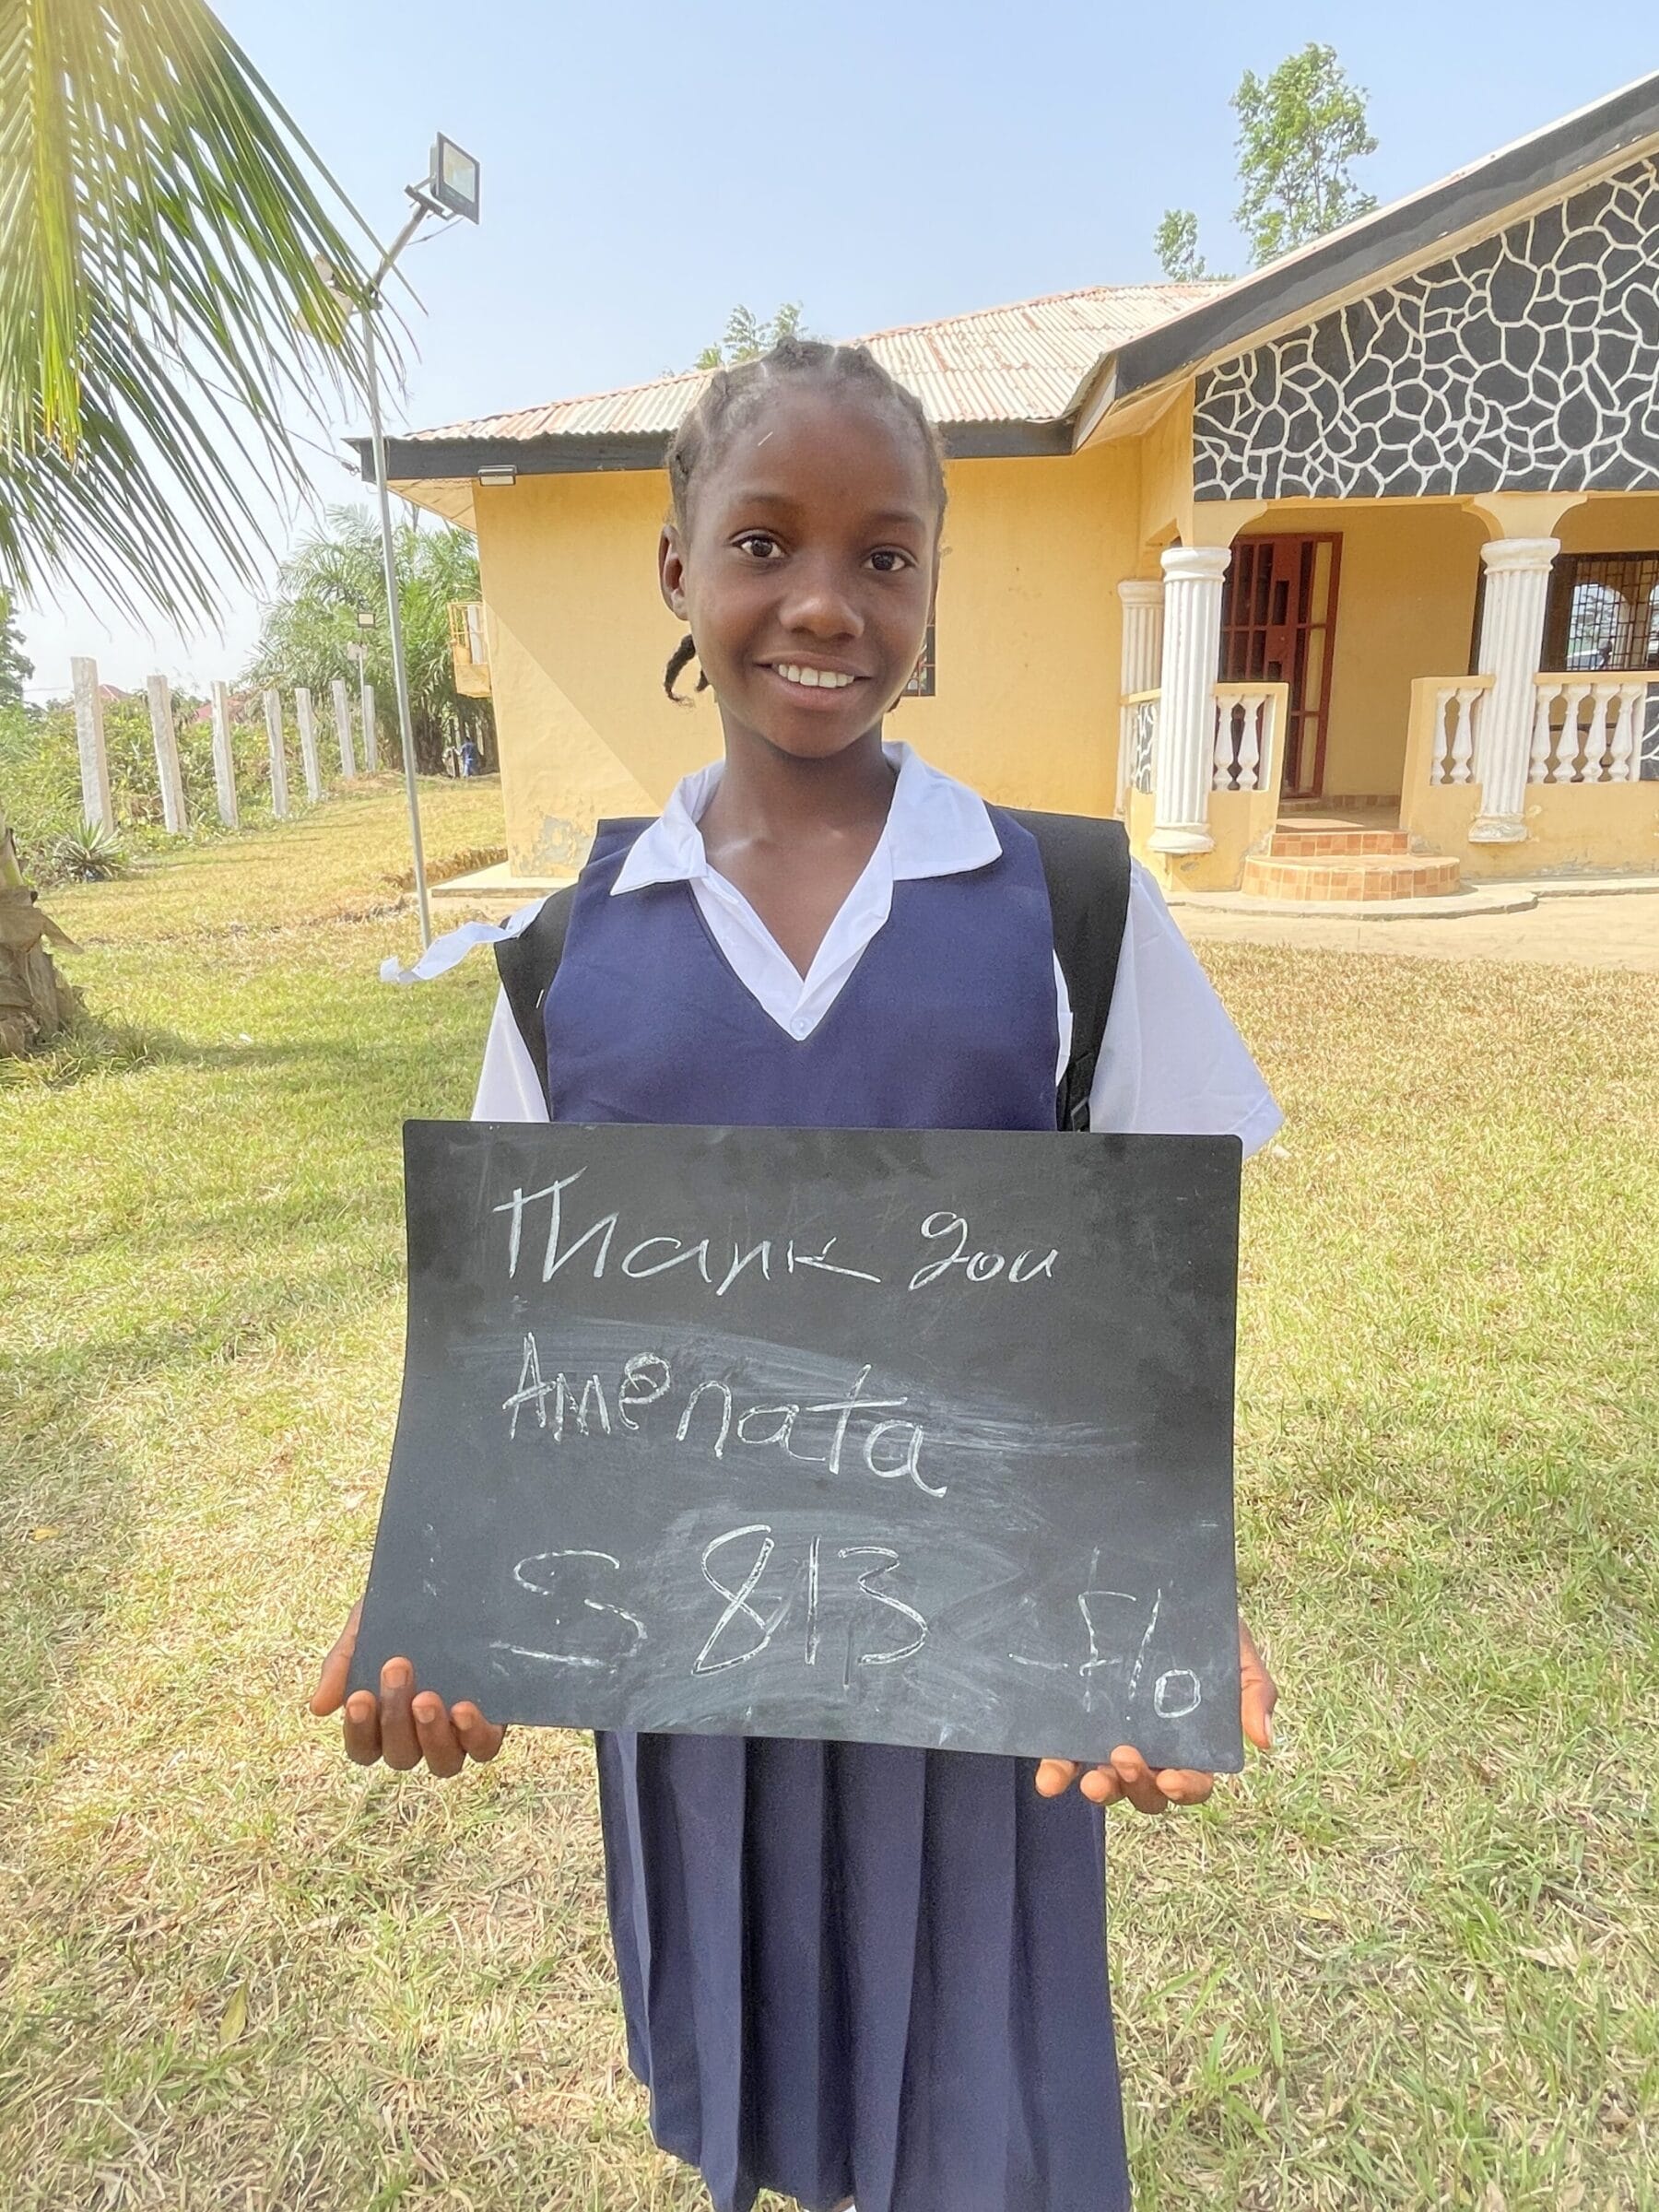 Thank you
Amenata
S 813 - F/o